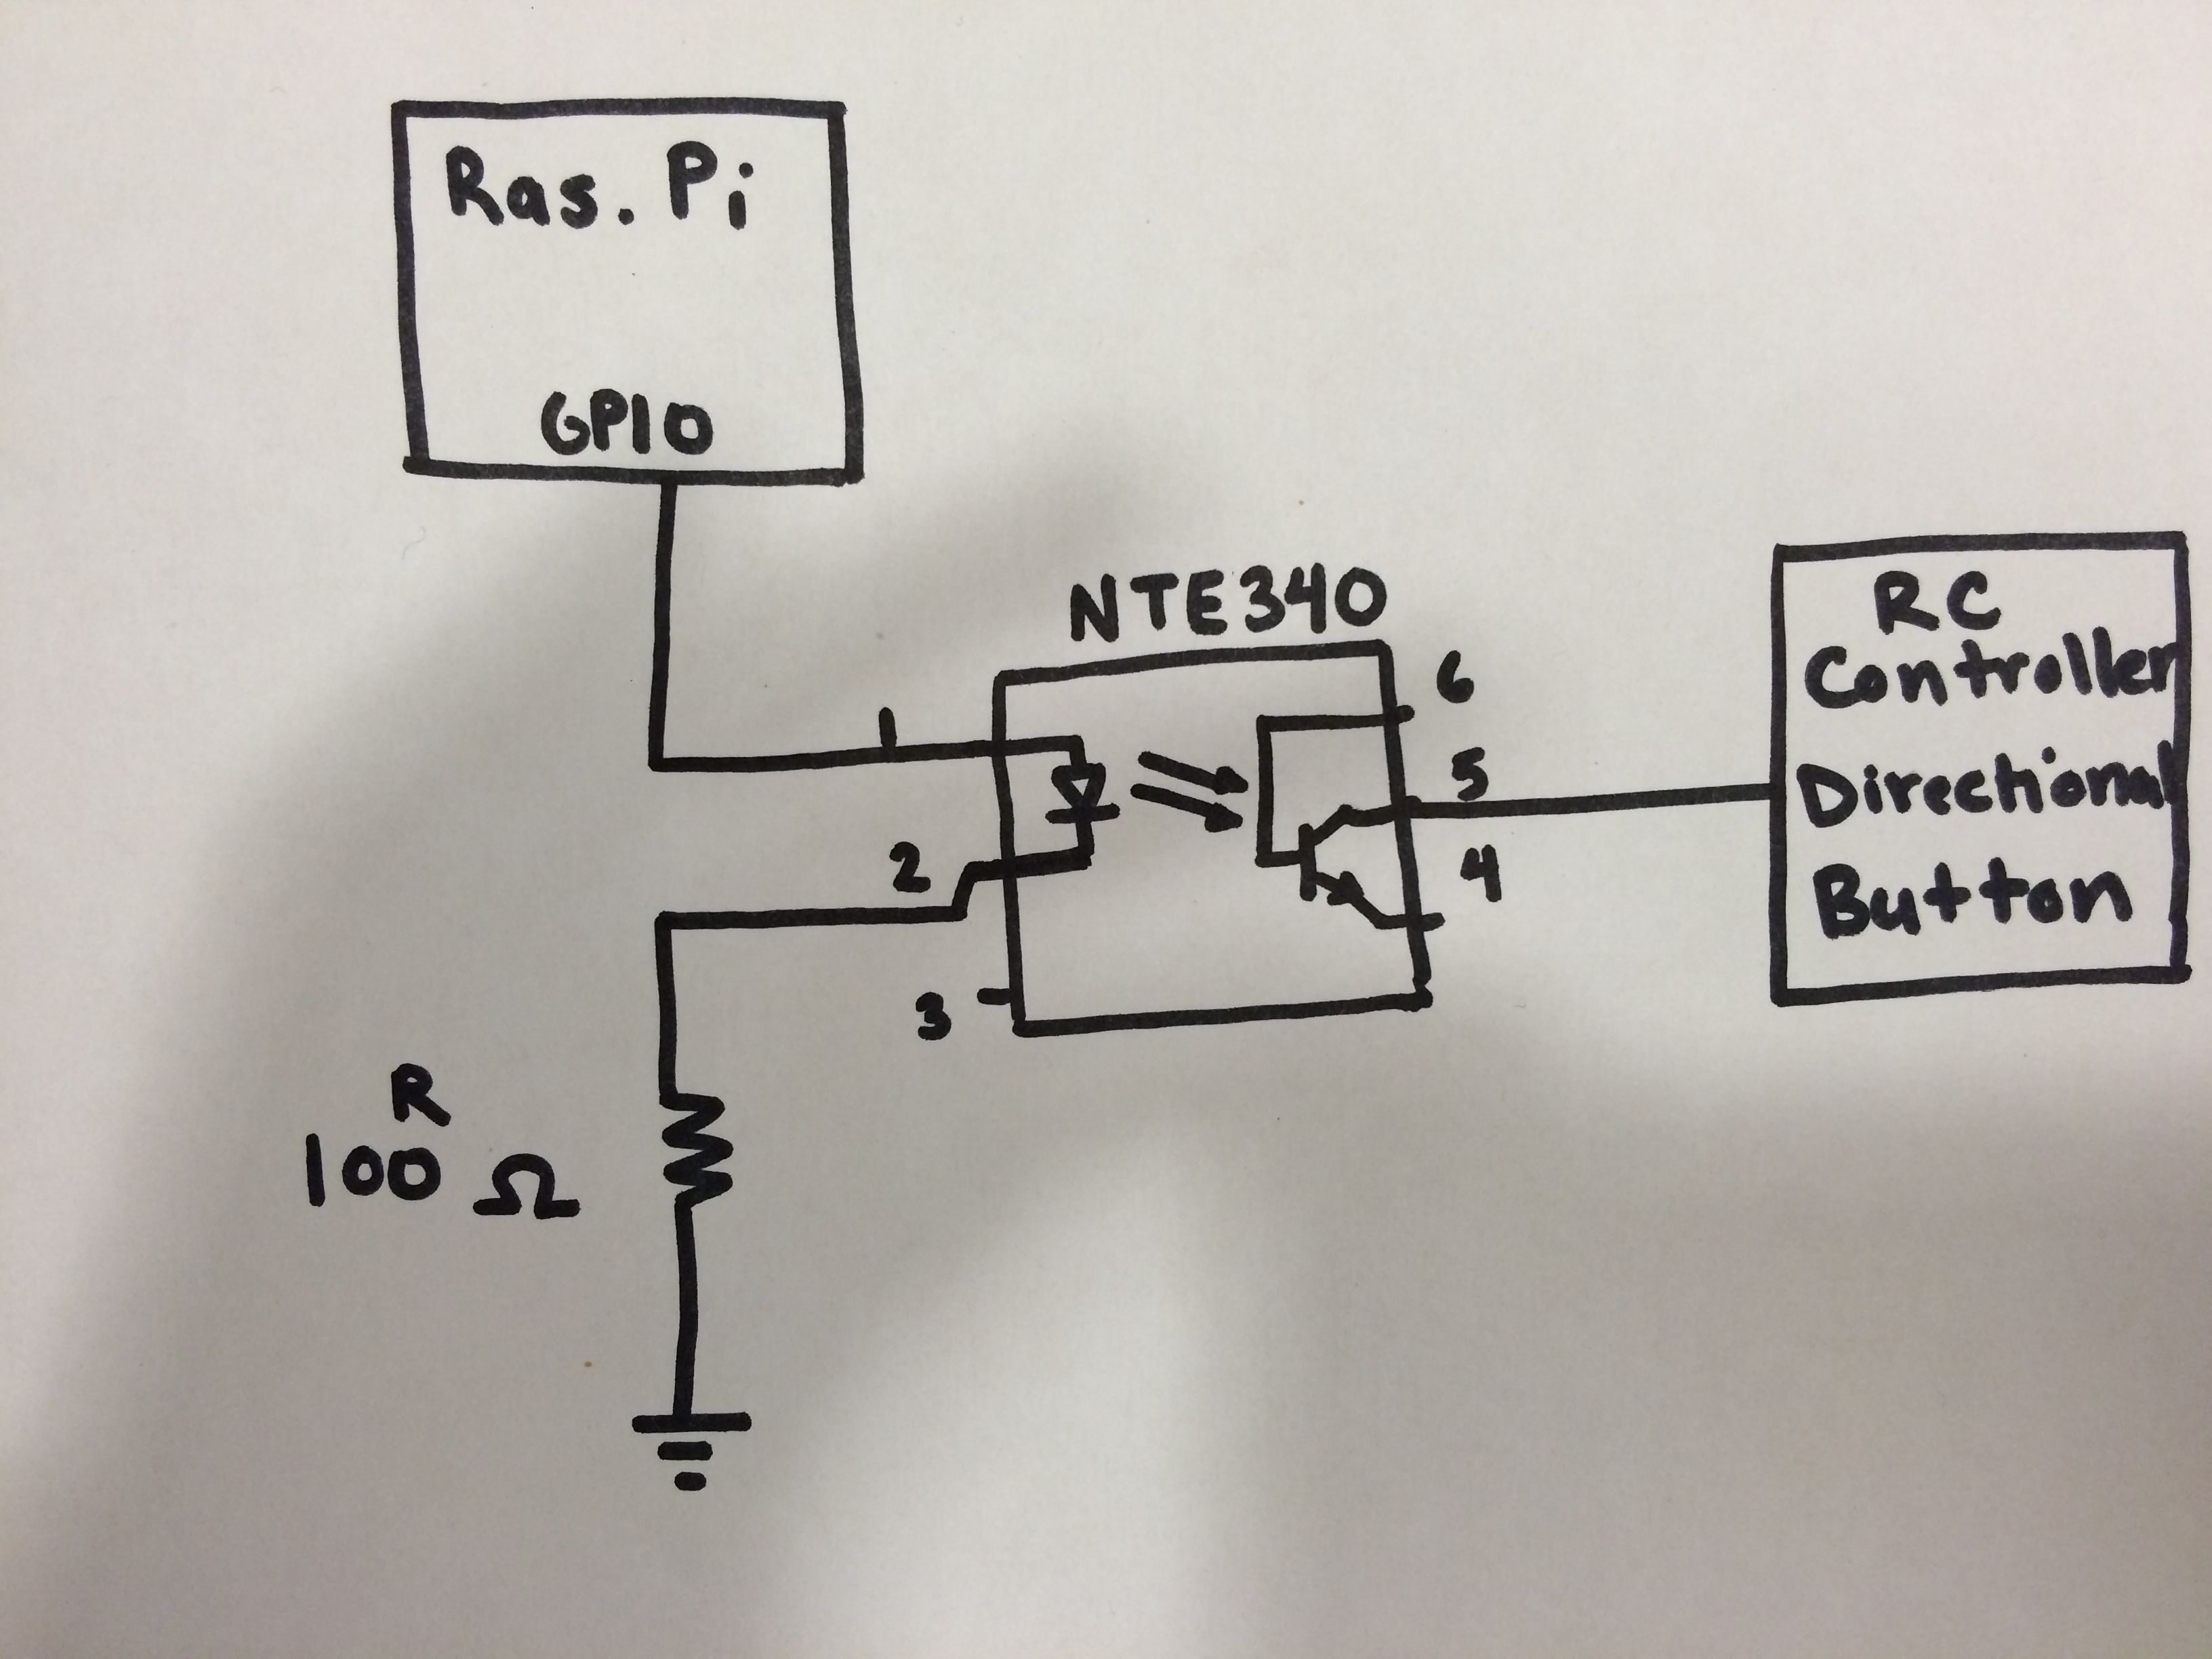 Ras. Pi
GPIO
NTE340
1
2
3
6
5
4
RC
Controller
Directional
Button
R
100 Ω